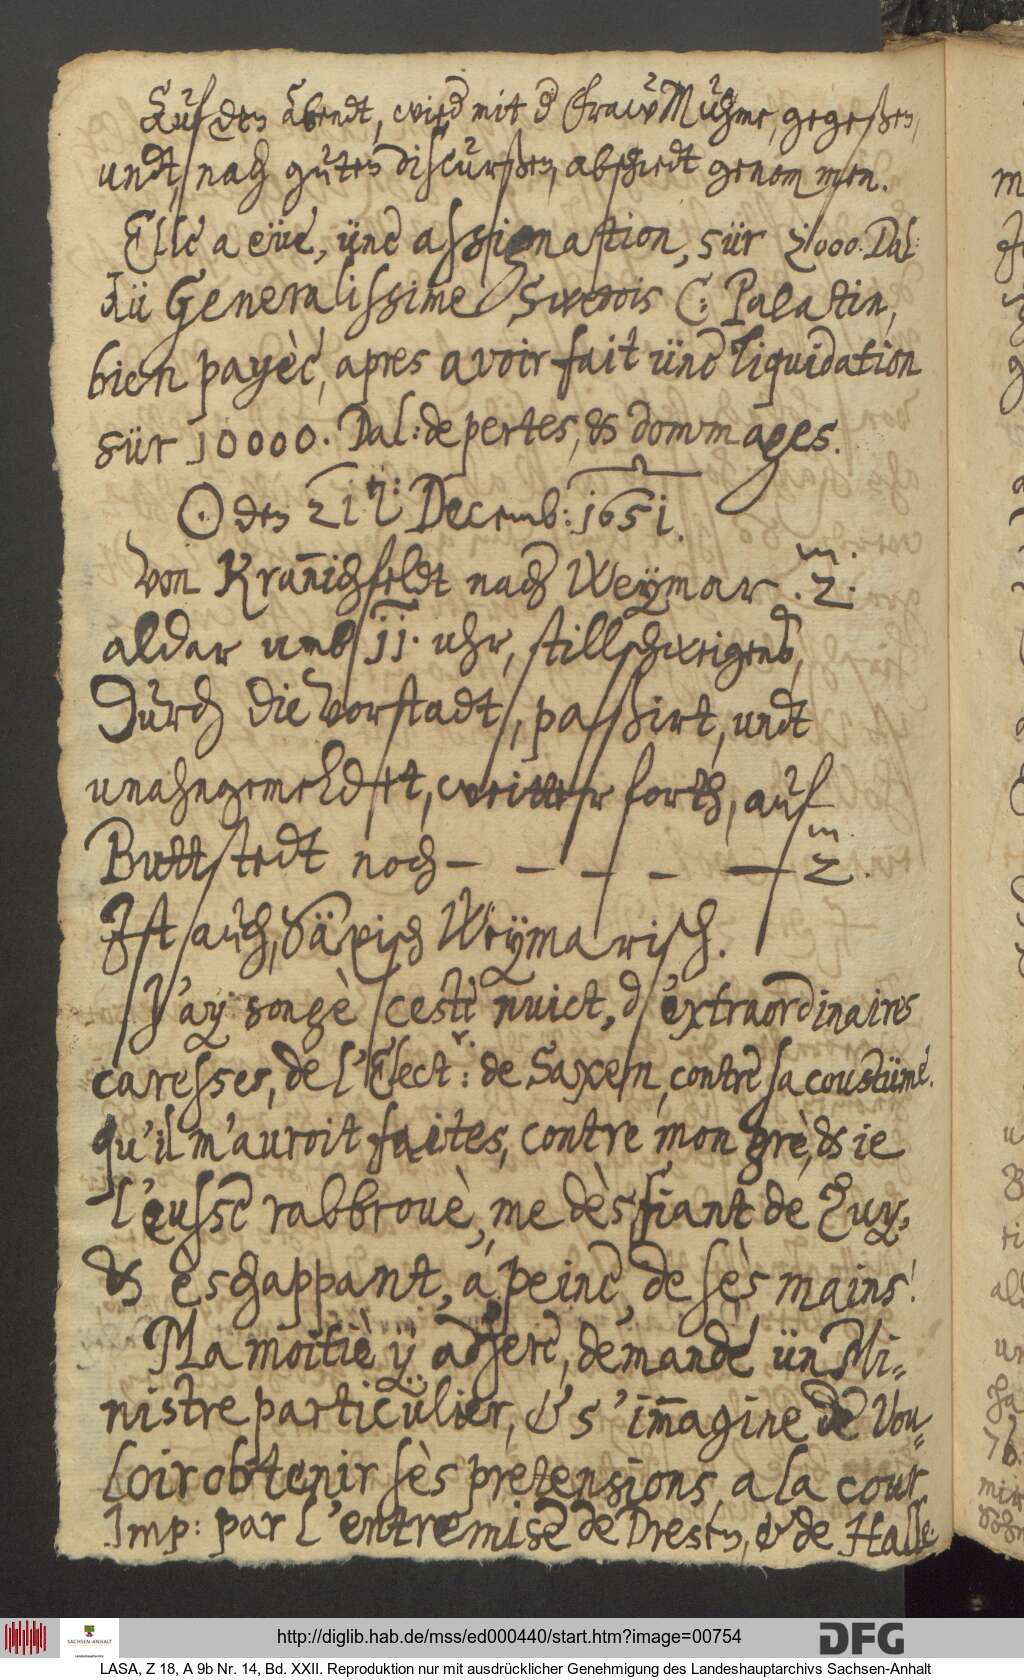 Auf den Abendt, wird mit d Fraw Muhme, gegeßen,
undt, nach guten discurßen, abschiedt genommen.
Elle a eüe, üne assignation, sür 21000. Dal:
dü Generalissime Süedois C: Palatin,
bien payèe, apres avoir fait üne liquidation
sür 10000. Dal: de pertes, & dommages.
☉ den 21. Decemb: 1651.
Von Kran̄ichfeldt nach Weÿmar . 2. m.
aldar umb 11. uhr, stillschweigend,
Durch die Vorstadt, paßirt, undt
unahngemeldett, weitter forth, auf
Buttstedt noch – – – – – 2 m.
Ist auch, Säxisch Weÿmarisch.
J'aÿ songè ceste nuict, d'extraordinaires
caresses, de l'Elect.r: de Saxen, contre sa coustüme.
qu'il m'auroit faites, contre mon grè, & ie
l'eusse rabbrouè, me dèsfiant de luy,
& eschappant, a peine, de sès mains!
Ma moitiè ÿ adhere, demande ün Mi⸗
nistre particulier, & s'im̄agine de Vou⸗
loir obtenir sès pretensions, a la cour
Imp: par l'entremise de Dresen, & de Halle.
http://diglib.hab.de/mss/ed000440/start.htm?image=00754
SACHSEN-ANHALT
DFG
LASA, Z 18, A 9b Nr. 14, Bd. XXII. Reproduktion nur mit ausdrücklicher Genehmigung des Landeshauptarchivs Sachsen-Anhalt